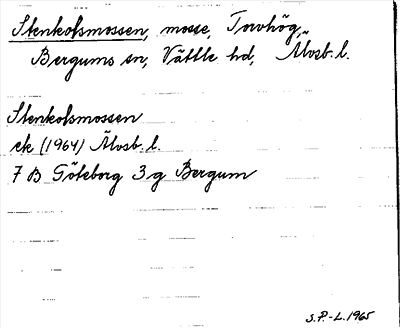 Stenkolsmossen, mosse, Torvhög,
Bergums sn, Vättle hd, Älvsb. l.
Stenkolsmossen
ek (1964) Älvsb. l.
7 B Göteborg 3 g Bergum
S.P.-L. 1965